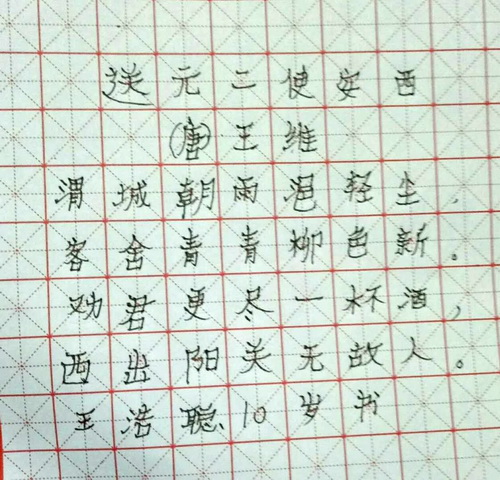 送元二使安西
(唐)王维
渭城朝雨浥轻尘,
客舍青青柳色新。
劝君更尽一杯酒,
西出阳关无故人。
王浩聪10岁书